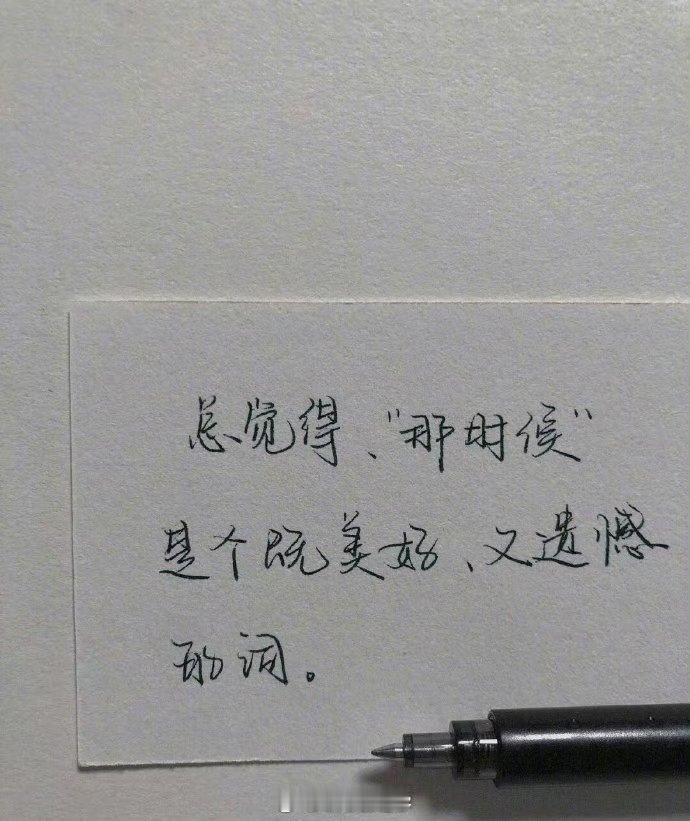 总觉得、“那时候”
是个既美好、又遗憾
的词。